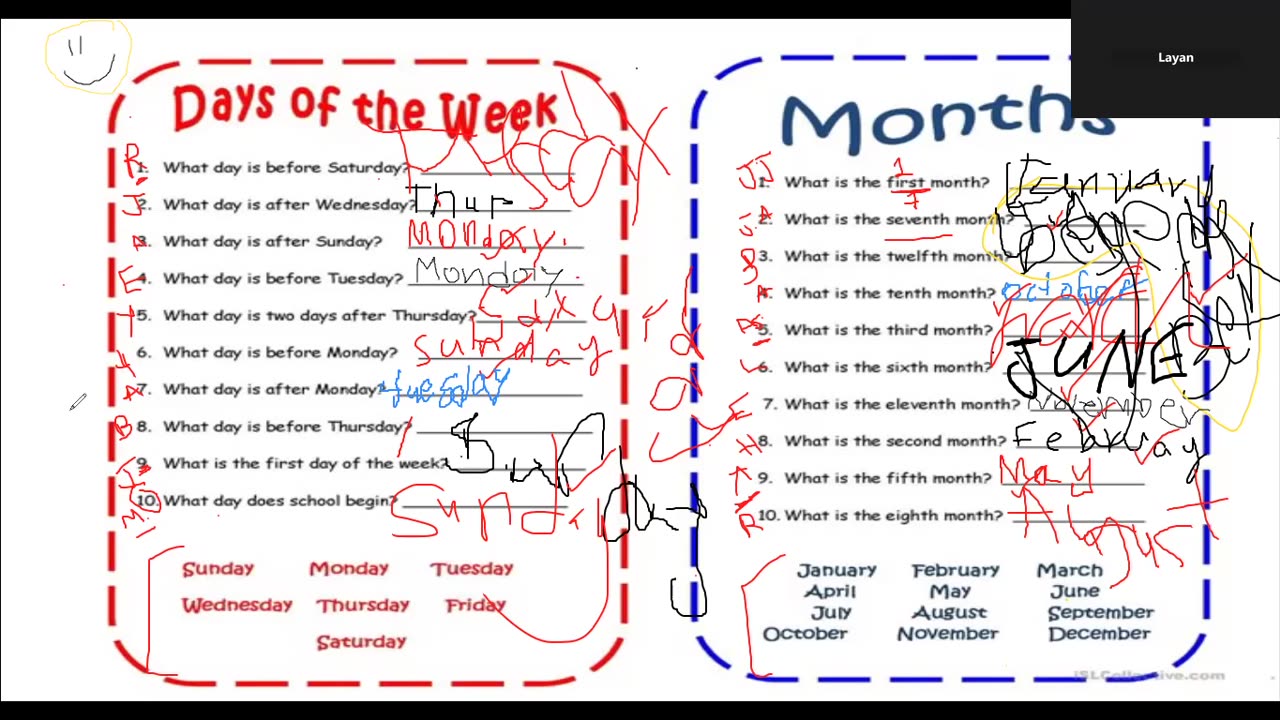 Layan
Days of the Week
1. What day is before Saturday?
2. What day is after Wednesday? Thur
3. What day is after Sunday? Monday.
4. What day is before Tuesday? Monday.
5. What day is two days after Thursday?
6. What day is before Monday? sunday
7. What day is after Monday? tuesday
8. What day is before Thursday?
9. What is the first day of the week?
10. What day does school begin? Sunday
Sunday Monday Tuesday
Wednesday Thursday Friday
Saturday
Months
1
7
1. What is the first month?
2. What is the seventh month?
3. What is the twelfth month?
4. What is the tenth month? october
5. What is the third month?
6. What is the sixth month? JUNE
7. What is the eleventh month? November
8. What is the second month? February
9. What is the fifth month? May
10. What is the eighth month?
January February March
April May June
July August September
October November December
iSLCollective.com